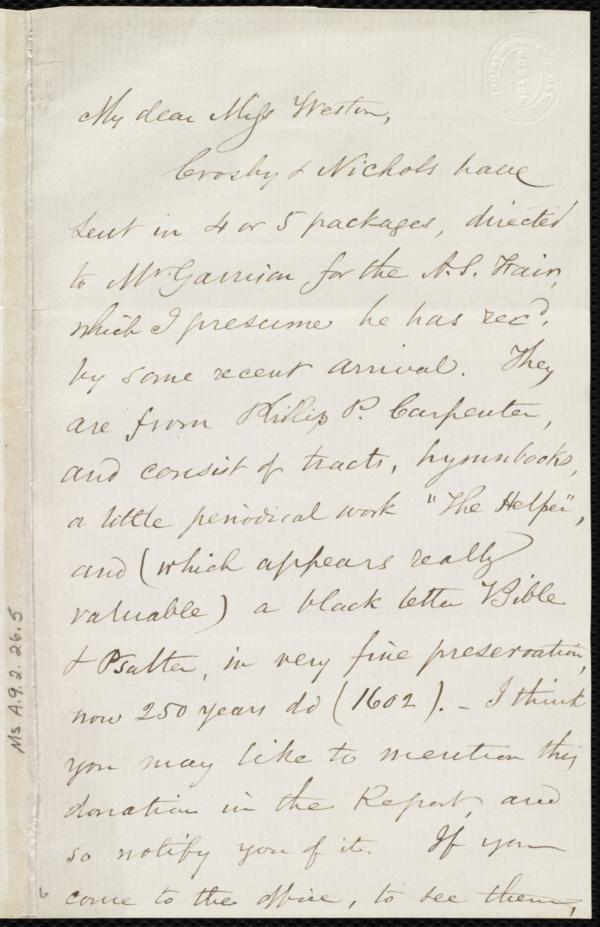 My dear Miss Weston,
Crosby & Nichols have
sent in 4 or 5 packages, directed
to Mr. Garrison for the A.S. Fair,
which I presume he has recd.
by some recent arrival. They
are from Philip P. Carpenter,
and consist of tracts, hymnbooks,
a little periodical work "The Helper",
and (which appears really
valuable) a black letter Bible
& Psalter, in very fine preservation,
now 250 years old (1602). - I think
you may like to mention this
donation in the Report, and
so notify you of it. If you
come to the office, to see them,
Ms A.9.2.26.5